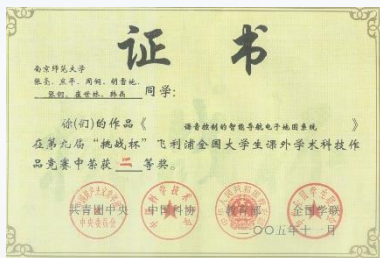 证书
南京师范大学
张宏、
张明、崔世林、韩磊 同学：
你(们)的作品《 语音控制的智能导航电子地图系统 》
在第九届“挑战杯”飞利浦全国大学生课外学术科技作
品竞赛中荣获 二 等奖。
共青团中央 中国科协 教育部 全国学联
二〇〇五年十一月